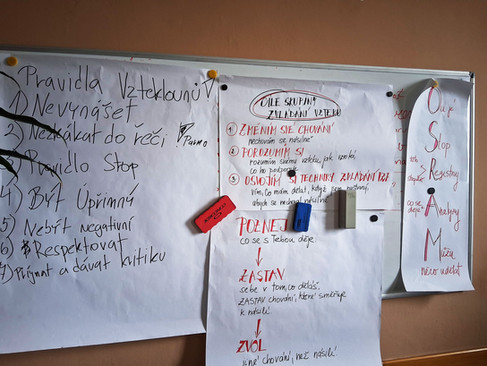 Pravidla Vzteklounů
1) Nevynášet
2) Neskákat do řeči
3) Pravidlo Stop
4) Být Upřímný
5) Nebýt negativní
6) Respektovat
7) Přijímat a dávat kritiku
CÍLE SKUPINY
ZVLÁDÁNÍ VZTEKU
1) ZMĚNÍM SVÉ CHOVÁNÍ
nechovám se násilně
2) POROZUMÍM SI
rozumím svému vzteku, jak vzniká,
co ho podporuje
3) OSVOJÍM SI TECHNIKY ZVLÁDÁNÍ
Vím, co mám dělat, když jsem
abych se nechoval násilně
POZNEJ
co se s Tebou děje
ZASTAV
sebe v tom, co děláš,
ZASTAV chování, které směřuje
k násilí.
ZVOL
jiné chování, než násilí.
co se
děje
Můžu
něco udělat